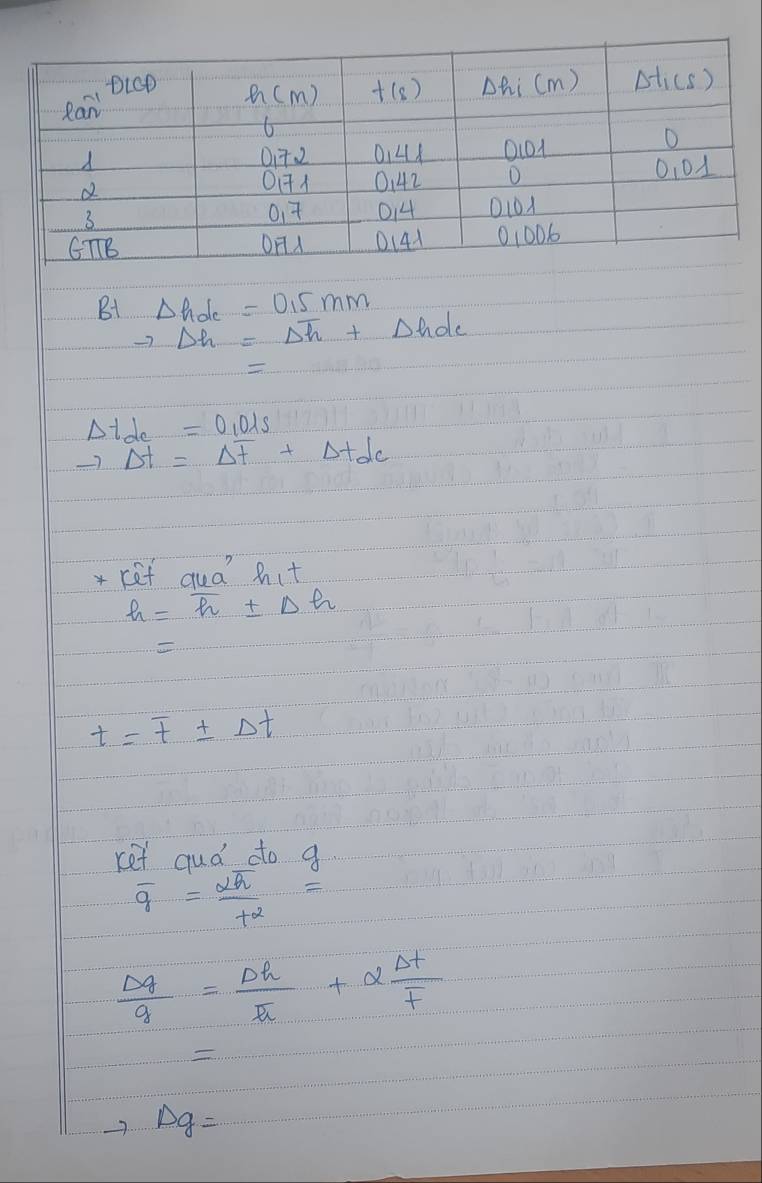 ĐLCĐ
lần h(m) t(s) Δhi (m) Δti(s)
1 0,72 0,41 0,01 0
2 0,71 0,42 0 0,01
3 0,7 0,4 0,01
GTTB 0,71 0,41 0,006
Bt Δhdc = 0,5 mm
→ Δh = Δh̅ + Δhdc
=
Δtdc = 0,01s
→ Δt = Δt̅ + Δtdc
* Kết quả h,t
h = h̅ ± Δh
=
t = t̅ ± Δt
Kết quả đo g
g̅ = 2h̅/t² =
Δg/g = Δh/h̅ + 2 Δt/t̅
=
→ Δg =